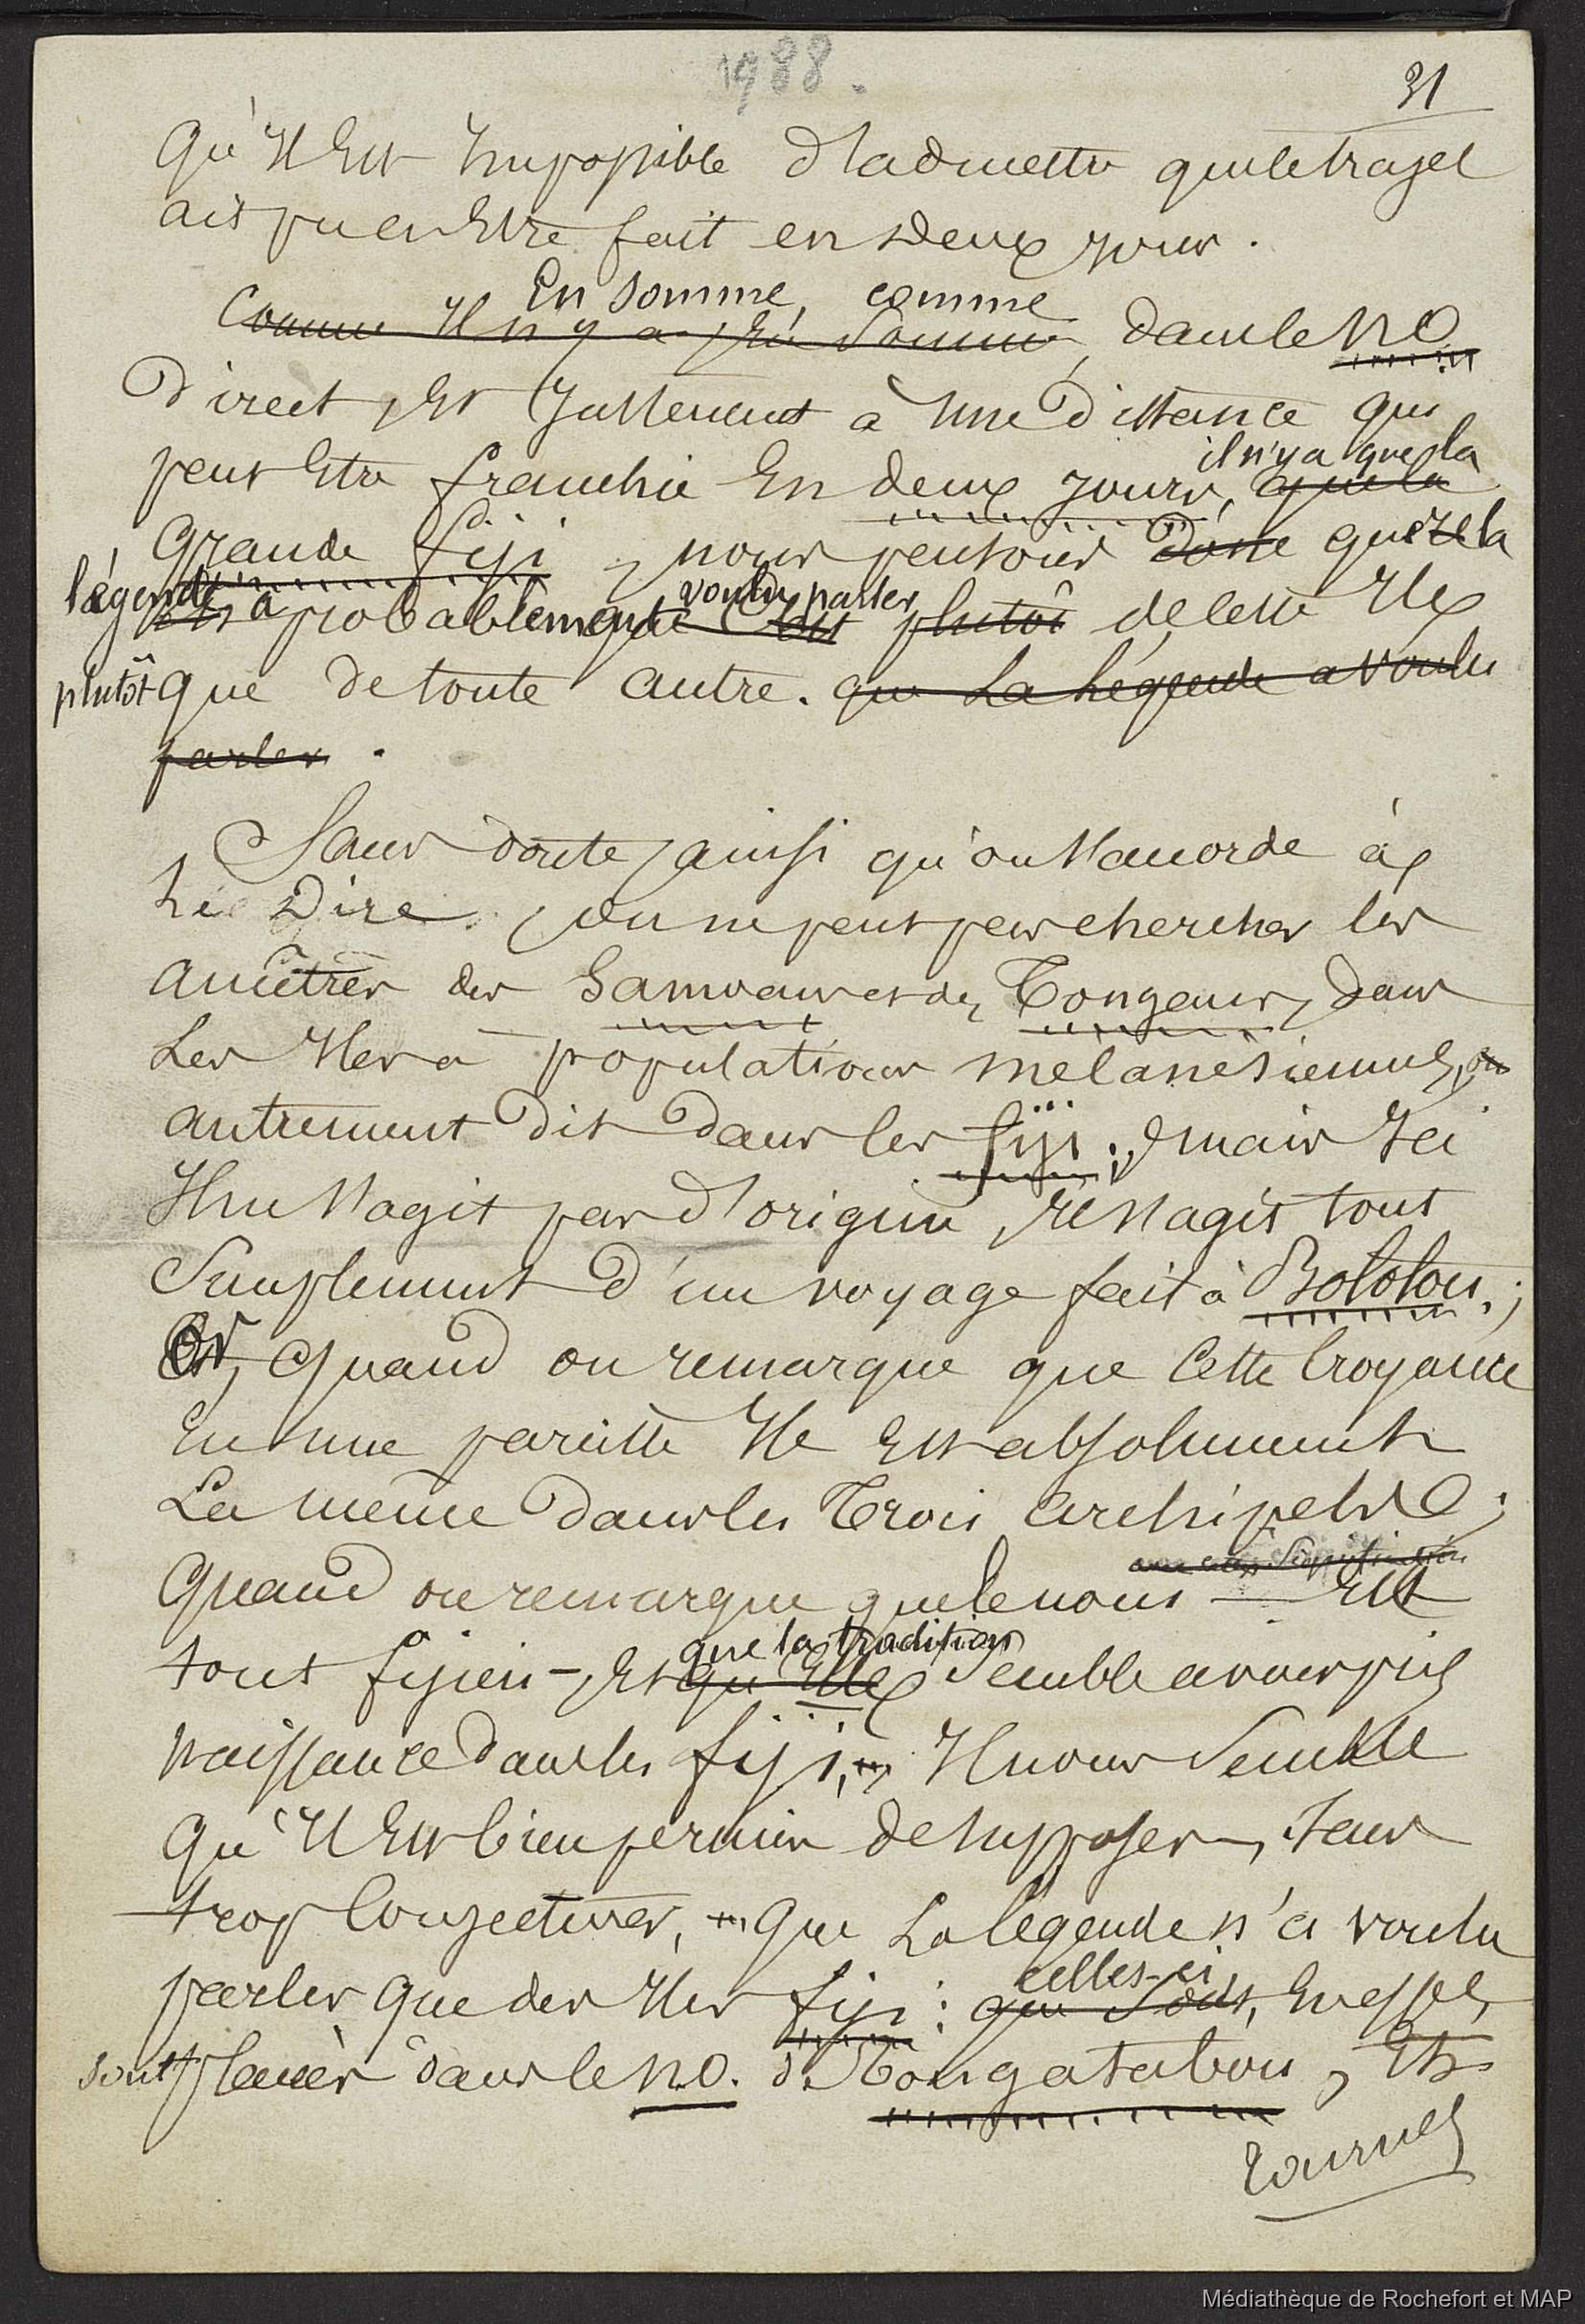 1988.
31
qu'il est impossible d'admettre que le trajet
ait pu en être fait en deux jours.
En somme, comme
Comme il n'y a en somme, dans le NO
direct, et justement à une distance qui
peut être franchie en deux jours, que la
il n'y a que la
grande fiji, nous pensons donc que la
légende a probablement voulu parler plutôt de cette île
plutôt que de toute autre. que la légende a voulu
parler.
Sans doute, ainsi qu'on s'accorde à
le dire, on ne peut pas chercher les
ancêtres des Samoans et des Tongans, dans
les îles à populations mélanésiennes, ou
autrement dit dans les fiji; mais ici
il ne s'agit pas d'origine, il s'agit tout
simplement d'un voyage fait à Bolotou;
Or, quand on remarque que cette croyance
en une pareille île est absolument
la même dans les trois archipels;
quand on remarque que le nom est
tout fijien -, et qu'elle semble avoir pris
que la tradition
naissance dans les fiji, il nous semble
qu'il est bien permis de supposer, sans
trop conjecturer, que la légende n'a voulu
parler que des îles fiji: qui sont, en effet,
celles-ci
sont placées dans le n.o. de Tongatabou, et
tournez
Médiathèque de Rochefort et MAP